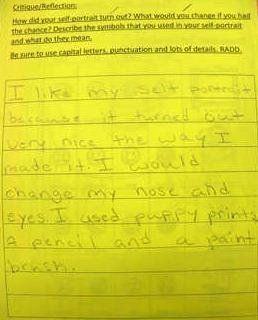 Critique/Reflection:
How did your self-portrait turn out? What would you change if you had
the chance? Describe the symbols that you used in your self-portrait
and what do they mean.
Be sure to use capital letters, punctuation and lots of details. RADD.
I like my self portrait
because it turned out
very nice the way I
made it. I would
change my nose and
eyes. I used puppy prints
a pencil and a paint
brush.